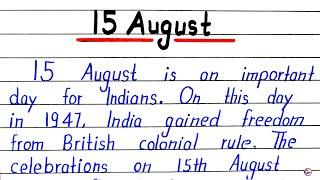 15 August
15 August is an important
day for Indians. On this day
in 1947, India gained freedom
from British colonial rule. The
celebrations on 15th August